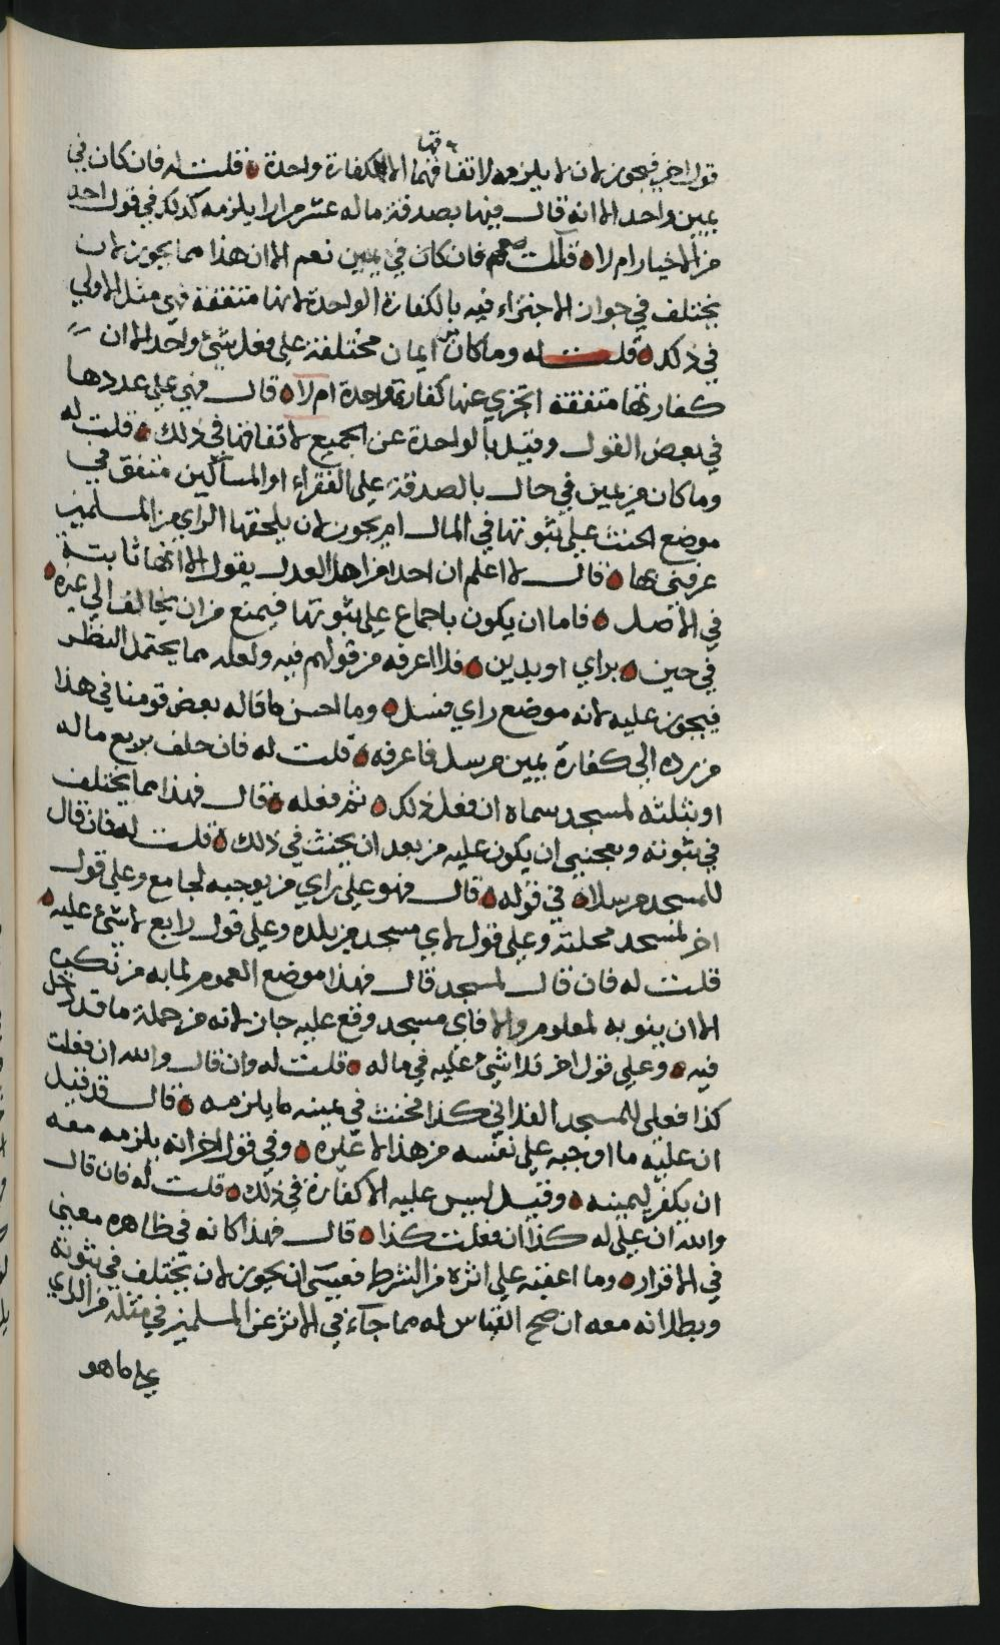 قول اخر فيجوز لان لا يلزمه لاتفاقهما الا كفارة واحدة قلت له فان كان في
يمين واحد الا انه قال فيها بصدقة ماله عشر مرارا يلزمه كذلك في قول احد
من الاخيار ام لا قلت فان كان في يمين نعم الا ان هذا مما يجوز لان
يختلف في جواز الاجتزاء فيه بالكفارة الواحدة لانها متفقة فهي مثل الاولي
في ذلك قلت له وما كان من ايمان مختلفة علي فعل شئ واحد الا ان
كفارتها متفقة اتجزي عنها كفارة واحدة ام لا قال فهي علي عددها
في بعض القول وقيل بالواحدة عن الجميع لاتفاقها في ذلك قلت له
وما كان من يمين في حال بالصدقة علي الفقراء او المساكين متفق في
موضع الحنث علي ثبوتها في المال ام يجوز لان يلحقها الراي من المسلمين
عرفني بها قال لا اعلم ان احدا من اهل العدل يقول الا انها ثابتة
في الاصل فاما ان يكون باجماع علي ثبوتها فيمنع من ان يخالف الي غيره
في حين براي او بدين فلا اعرفه من قولهم فيه ولعله مما يحتمل النظر
فيجوز عليه لانه موضع راي فسل وما احسن ما قاله بعض قومنا في هذا
من رده الي كفارة يمين مرسل فاعرفه قلت له فان حلف بربع ماله
او بثلثه لمسجد سماه ان فعل ذلك ثم فعله قال فهذا مما يختلف
في ثبوته ويعجبني ان يكون عليه من بعد ان يحنث في ذلك قلت له فان قال
للمسجد مرسلا في قوله قال فهو علي راي من يوجبه لجامع وعلي قول
اخر لمسجد محلته وعلي قول لاي مسجد من بلده وعلي قول رابع لا شئ عليه
قلت له فان قال لمسجد قال فهذا موضع العموم لما به من تنكير
الا ان ينو به لمعلوم والا فاي مسجد وقع عليه جاز لانه من جملة ما قد دخل
فيه وعلي قول اخر فلا شئ عليه في ماله قلت له وان قال والله ان فعلت
كذا فعلي للمسجد الفلاني كذا فحنث في يمينه ما يلزمه قال قد قيل
ان عليه ما اوجبه علي نفسه من هذا لا غيره وفي قول اخر انه يلزمه معه
ان يكفر ليمينه وقيل ليس عليه الا كفارة في ذلك قلت له فان قال
والله ان علي له كذا ان فعلت كذا قال فهذا كانه في ظاهره معني
في الاقرار وما اعقبه علي اثره من الشرط فعيسي ان يجوز لان يختلف في ثبوته
وبطلانه معه ان صح القياس له مما جآء في الاثر عن المسلمين في مثله من الراي
علي ما هو